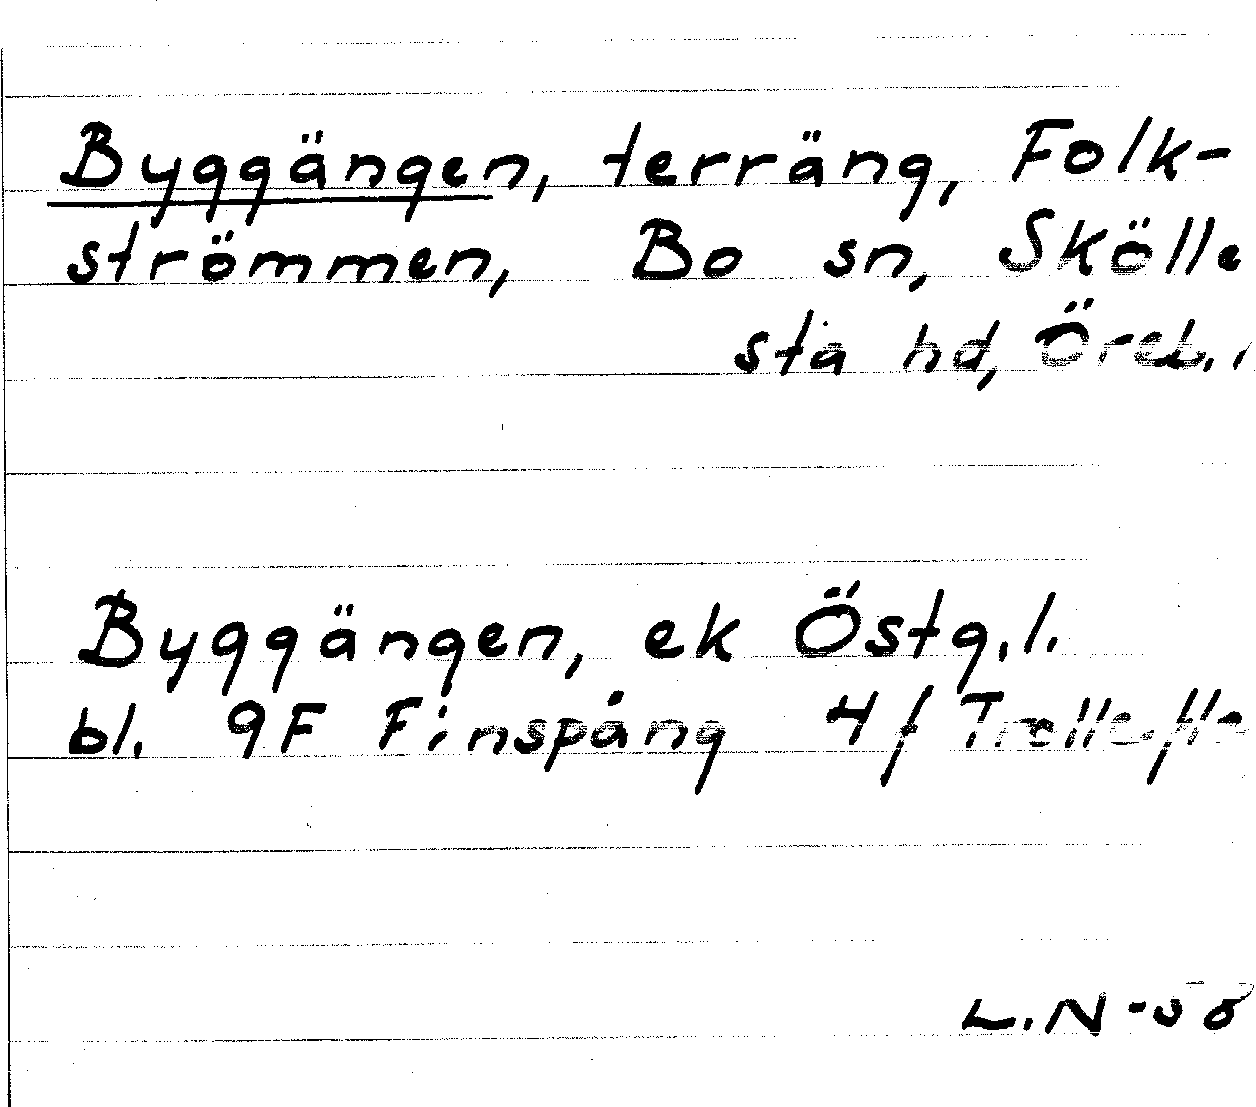 Byggängen, terräng, Folk-
strömmen, Bo sn, Skölle
sta hd, Öreb. l
Byggängen, ek Östg.l.
bl. 9F Finspång 4f
L.N -58